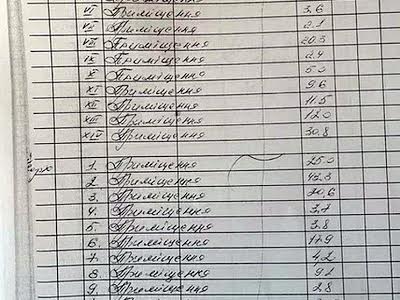 VI Приміщення 3,6
VII Приміщення 2.1
VIII Приміщення 20.3
IX Приміщення 2.4
X Приміщення 5.0
XI Приміщення 9.6
XII Приміщення 11.5
XIII Приміщення 12.0
XIV Приміщення 30.8
1. Приміщення 25.0
2. Приміщення 42.3
3. Приміщення 20,6
4. Приміщення 3,7
5. Приміщення 3.8
6. Приміщення 17.9
7. Приміщення 4.2
8. Приміщення 9.1
9. Приміщення 2.8